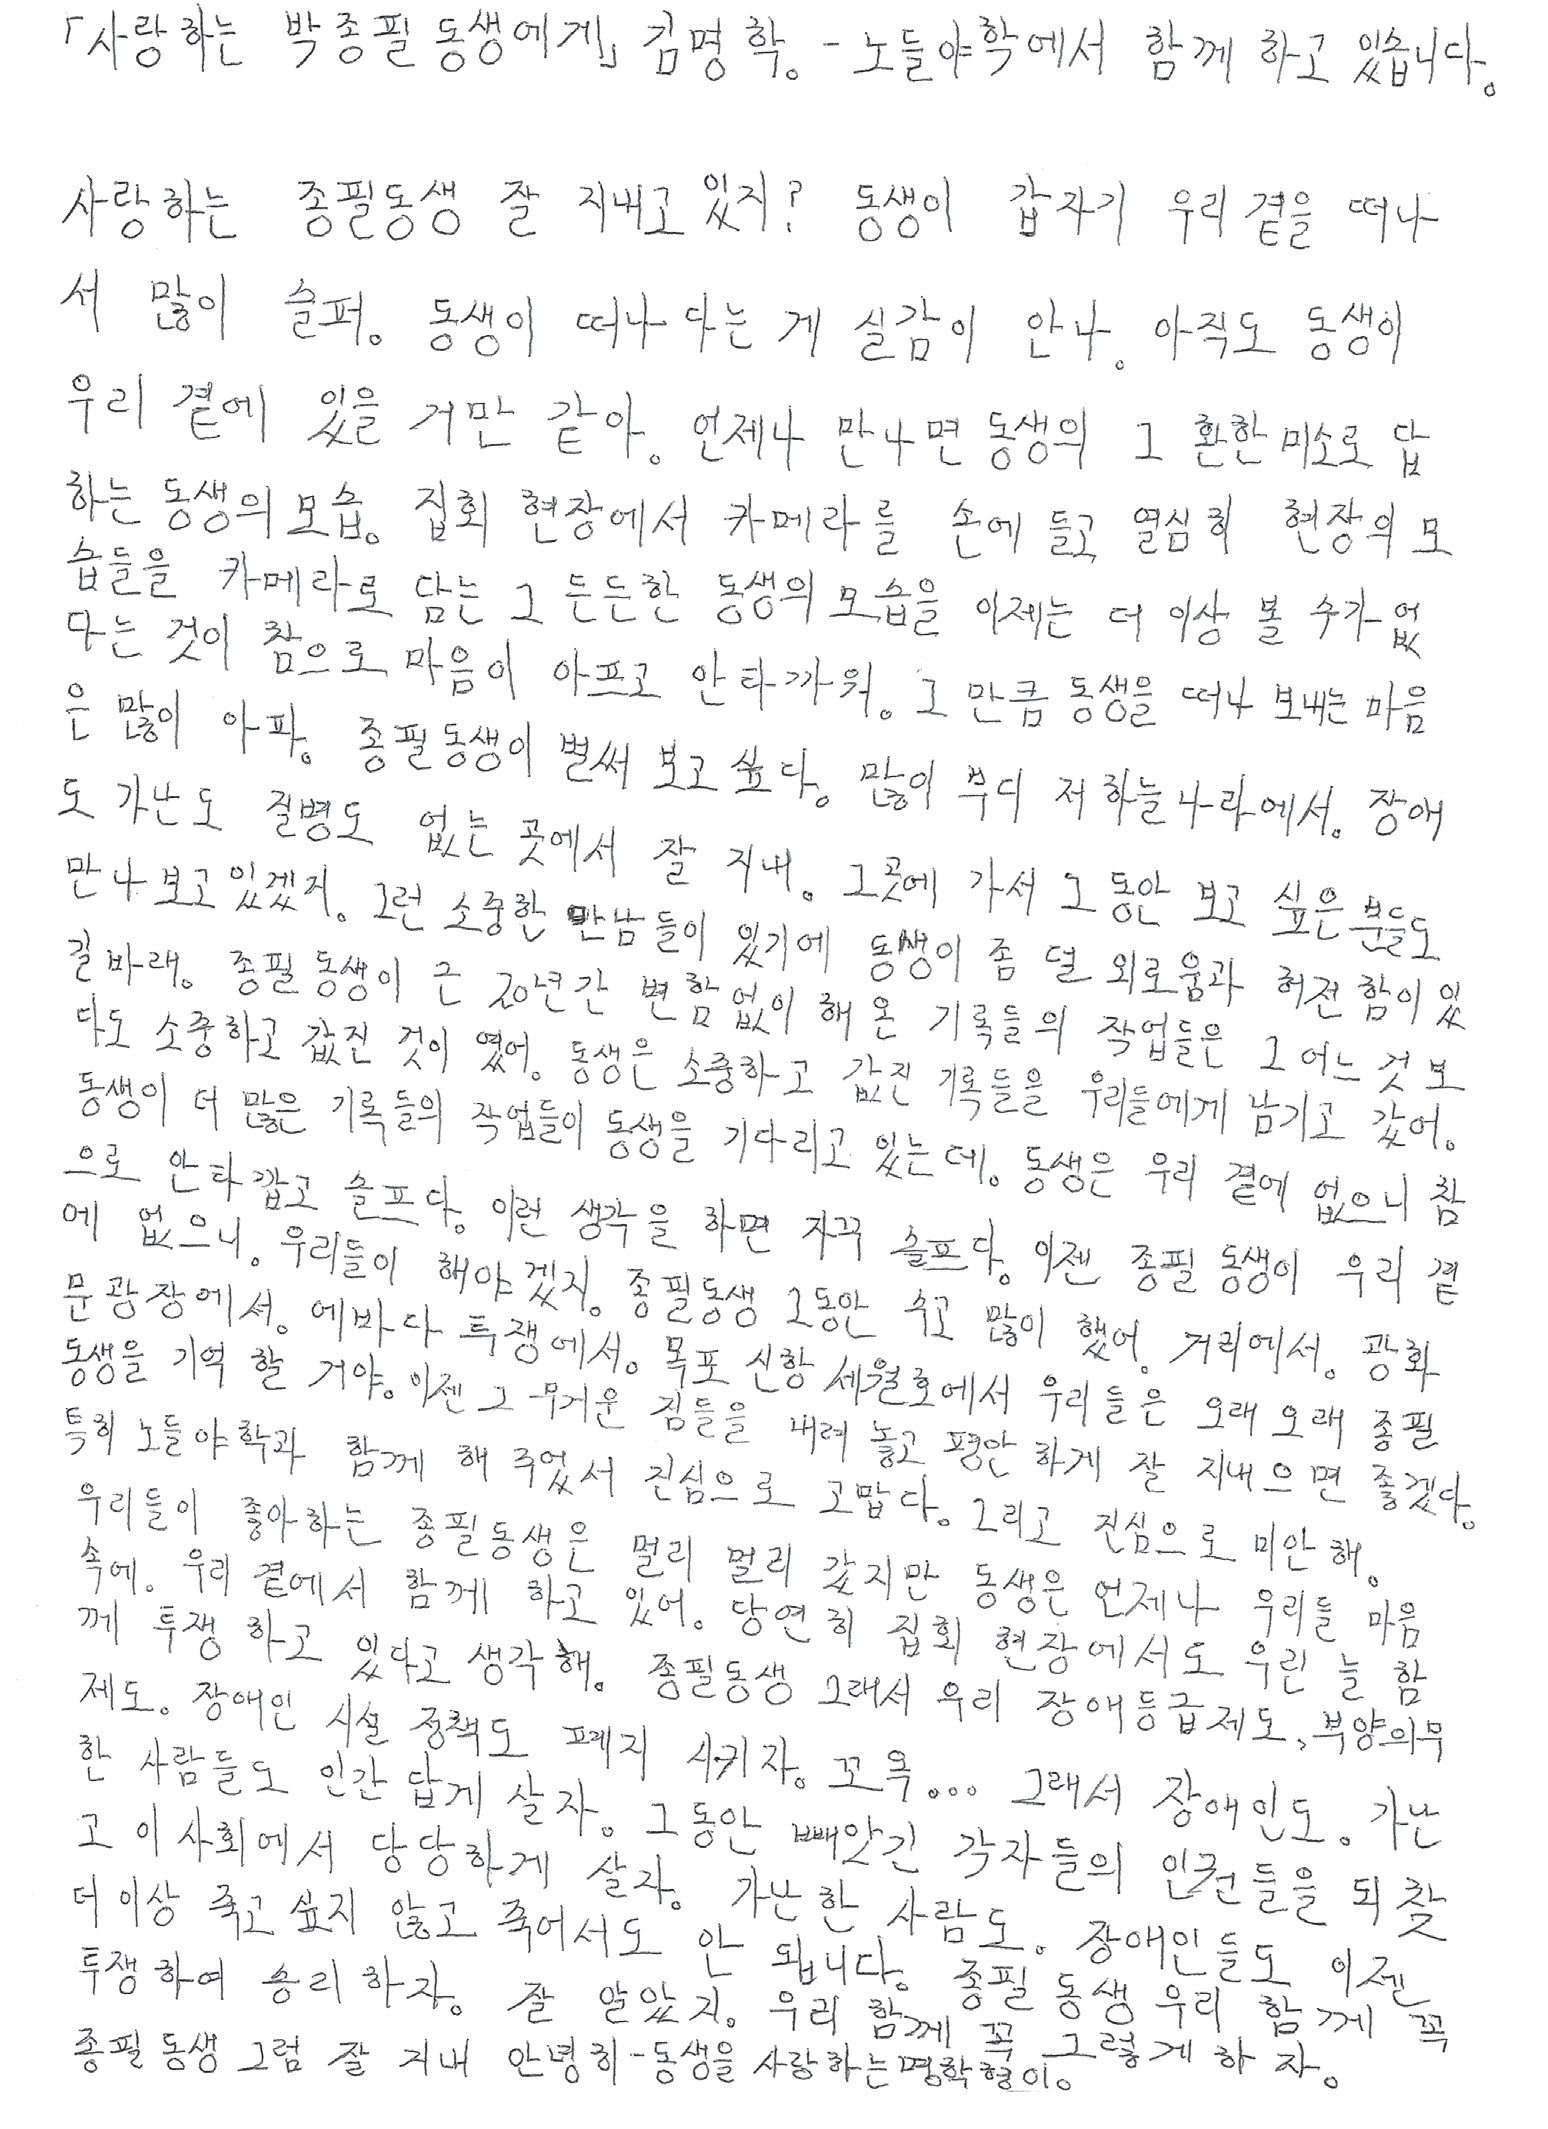 「사랑하는 박종필 동생에게」 김명학. - 노들야학에서 함께 하고 있습니다.
사랑하는 종필동생 잘 지내고 있지? 동생이 갑자기 우리 곁을 떠나
서 많이 슬퍼. 동생이 떠나다는 게 실감이 안나. 아직도 동생이
우리 곁에 있을 거만 같아. 언제나 만나면 동생의 그 환한 미소로 답
하는 동생의 모습. 집회 현장에서 카메라를 손에 들고 열심히 현장의 모
습들을 카메라로 담는 그 든든한 동생의 모습을 이제는 더 이상 볼 수가 없
다는 것이 참으로 마음이 아프고 안타까워. 그 만큼 동생을 떠나 보내는 마음
은 많이 아파. 종필동생이 벌써 보고 싶다. 많이 부디 저 하늘나라에서. 장애
도 가난도 질병도 없는 곳에서 잘 지내. 그곳에 가서 그 동안 보고 싶은 분들도
만나보고 있겠지. 그런 소중한 만남들이 있기에 동생이 좀 덜 외로움과 허전함이 있
길 바래. 종필 동생이 근 20년간 변함없이 해 온 기록들의 작업들은 그 어느 것 보
다도 소중하고 값진 것이 였어. 동생은 소중하고 값진 기록들을 우리들에게 남기고 갔어.
동생이 더 많은 기록들의 작업들이 동생을 기다리고 있는데. 동생은 우리 곁에 없으니 참
으로 안타깝고 슬프다. 이런 생각을 하면 자꾸 슬프다. 이젠 종필 동생이 우리 곁
에 없으니. 우리들이 해야겠지. 종필동생 그동안 수고 많이 했어. 거리에서. 광화
문 광장에서. 에바다 투쟁에서. 목포 신항 세월호에서 우리들은 오래 오래 종필
동생을 기억 할 거야. 이젠 그 무거운 짐들을 내려 놓고 평안하게 잘 지내으면 좋겠다.
특히 노들야학과 함께 해 주었서 진심으로 고맙다. 그리고 진심으로 미안해.
우리들이 좋아하는 종필동생은 멀리 멀리 갔지만 동생은 언제나 우리들 마음
속에. 우리 곁에서 함께 하고 있어. 당연히 집회 현장에서도 우린 늘 함
께 투쟁 하고 있다고 생각해. 종필동생 그래서 우리 장애등급제도, 부양의무
제도. 장애인 시설 정책도 폐지 시키자. 꼬옥... 그래서 장애인도. 가난
한 사람들도 인간 답게 살자. 그 동안 빼앗긴 각자들의 인권들을 되찾
고 이 사회에서 당당하게 살자. 가난한 사람도. 장애인들도 이젠
더 이상 죽고 싶지 않고 죽어서도 안 됩니다. 종필 동생 우리 함께 꼭
투쟁하여 승리하자. 잘 알았지. 우리 함께 꼭 그렇게 하자.
종필 동생 그럼 잘 지내 안녕히-동생을 사랑하는 명학형이.